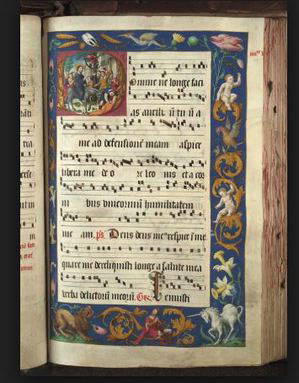 Domine ne longe faci
as auxiliū tuū a
me ad defensionē meam aspice
libera me de ore leonis et a cor
nibus vnicorniū humilitatem
meam. ps. Deus deus me⁹ respice ī me
quare me dereliquisti longe a salute mea
verba delictorū meoꝝ. GR. Tenuisti